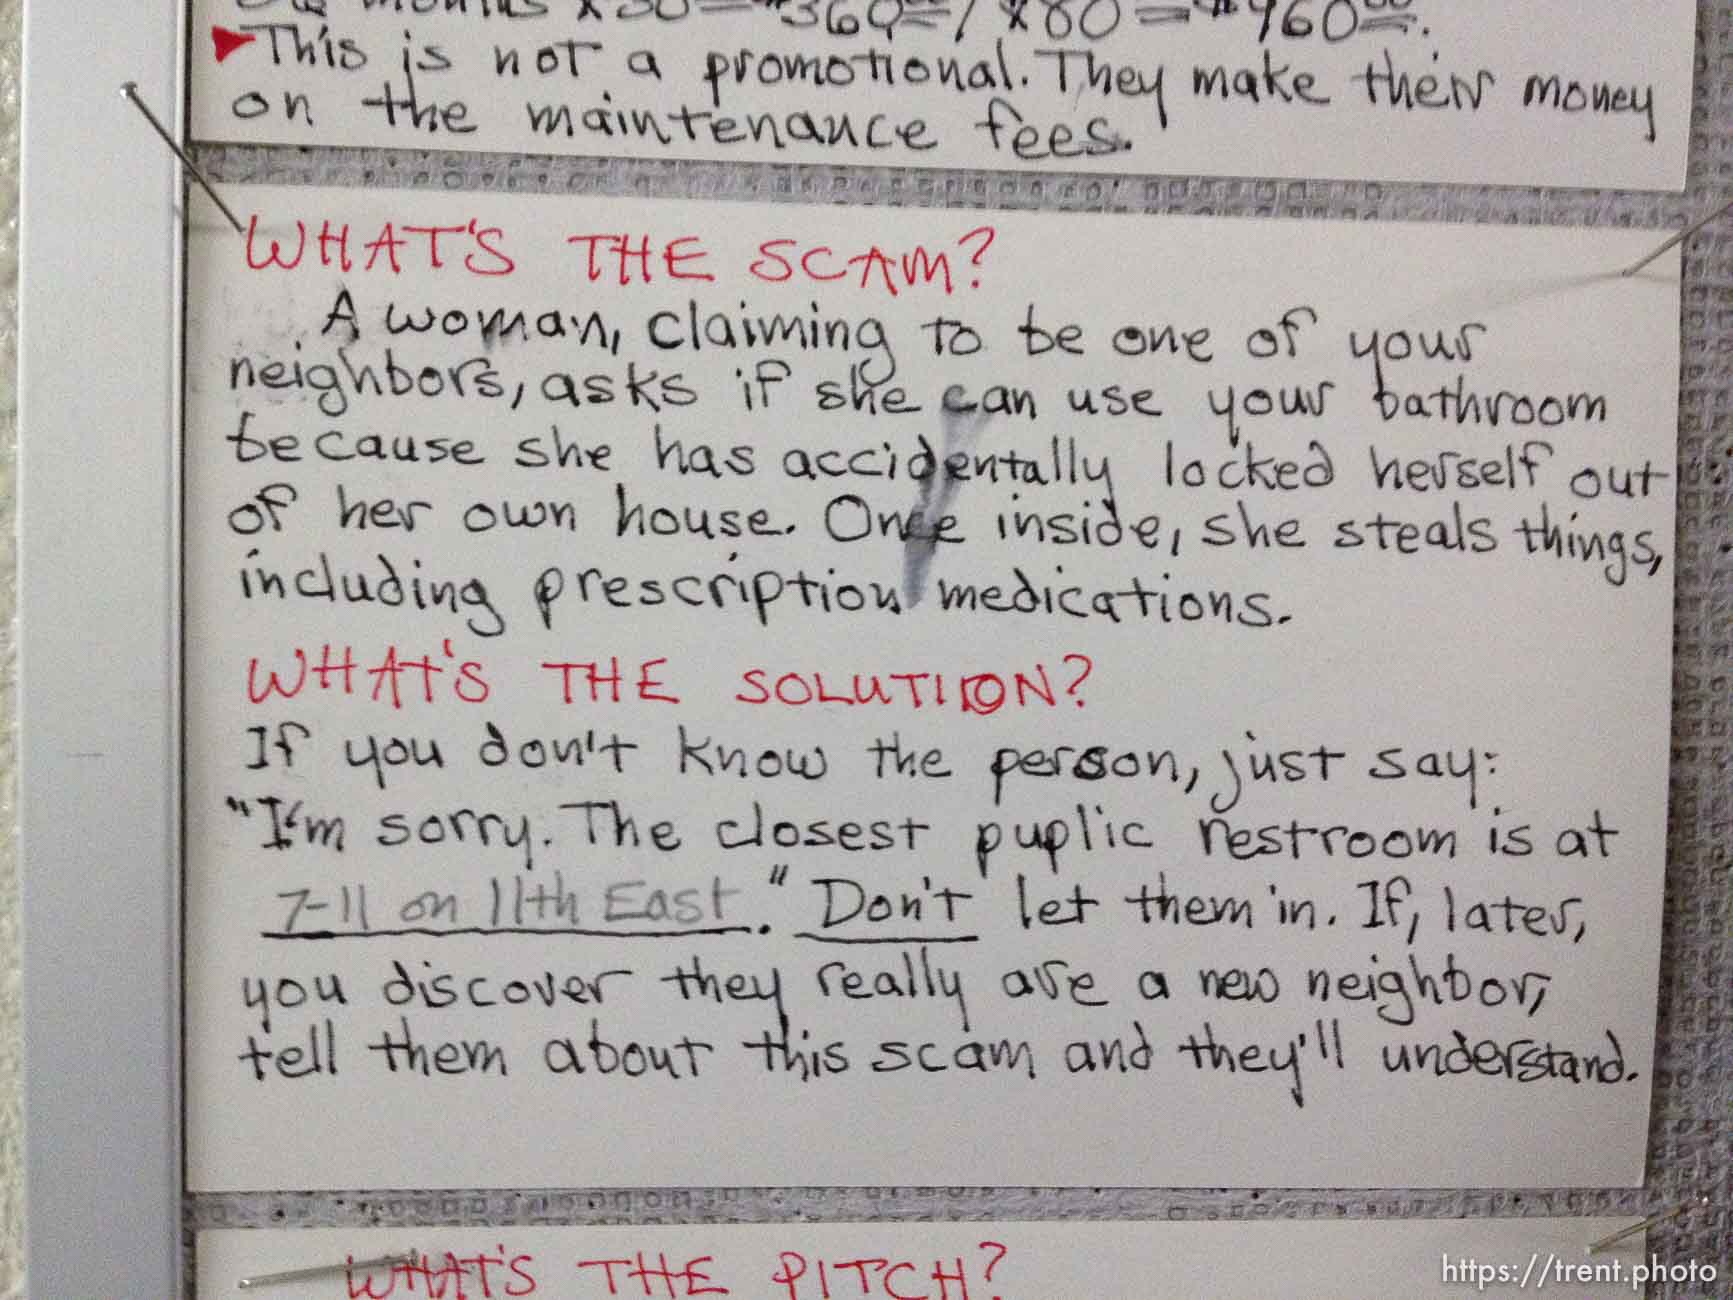 months x 30 = $360 00 / x 80 = $960 00.
▶This is not a promotional. They make their money
on the maintenance fees.
WHAT'S THE SCAM?
A woman, claiming to be one of your
neighbors, asks if she can use your bathroom
because she has accidentally locked herself out
of her own house. Once inside, she steals things,
including prescription medications.
WHAT'S THE SOLUTION?
If you don't know the person, just say:
"I'm sorry. The closest puplic restroom is at
7-11 on 11th East." Don't let them in. If, later,
you discover they really are a new neighbor,
tell them about this scam and they'll understand.
WHAT'S THE PITCH?
https://trent.photo